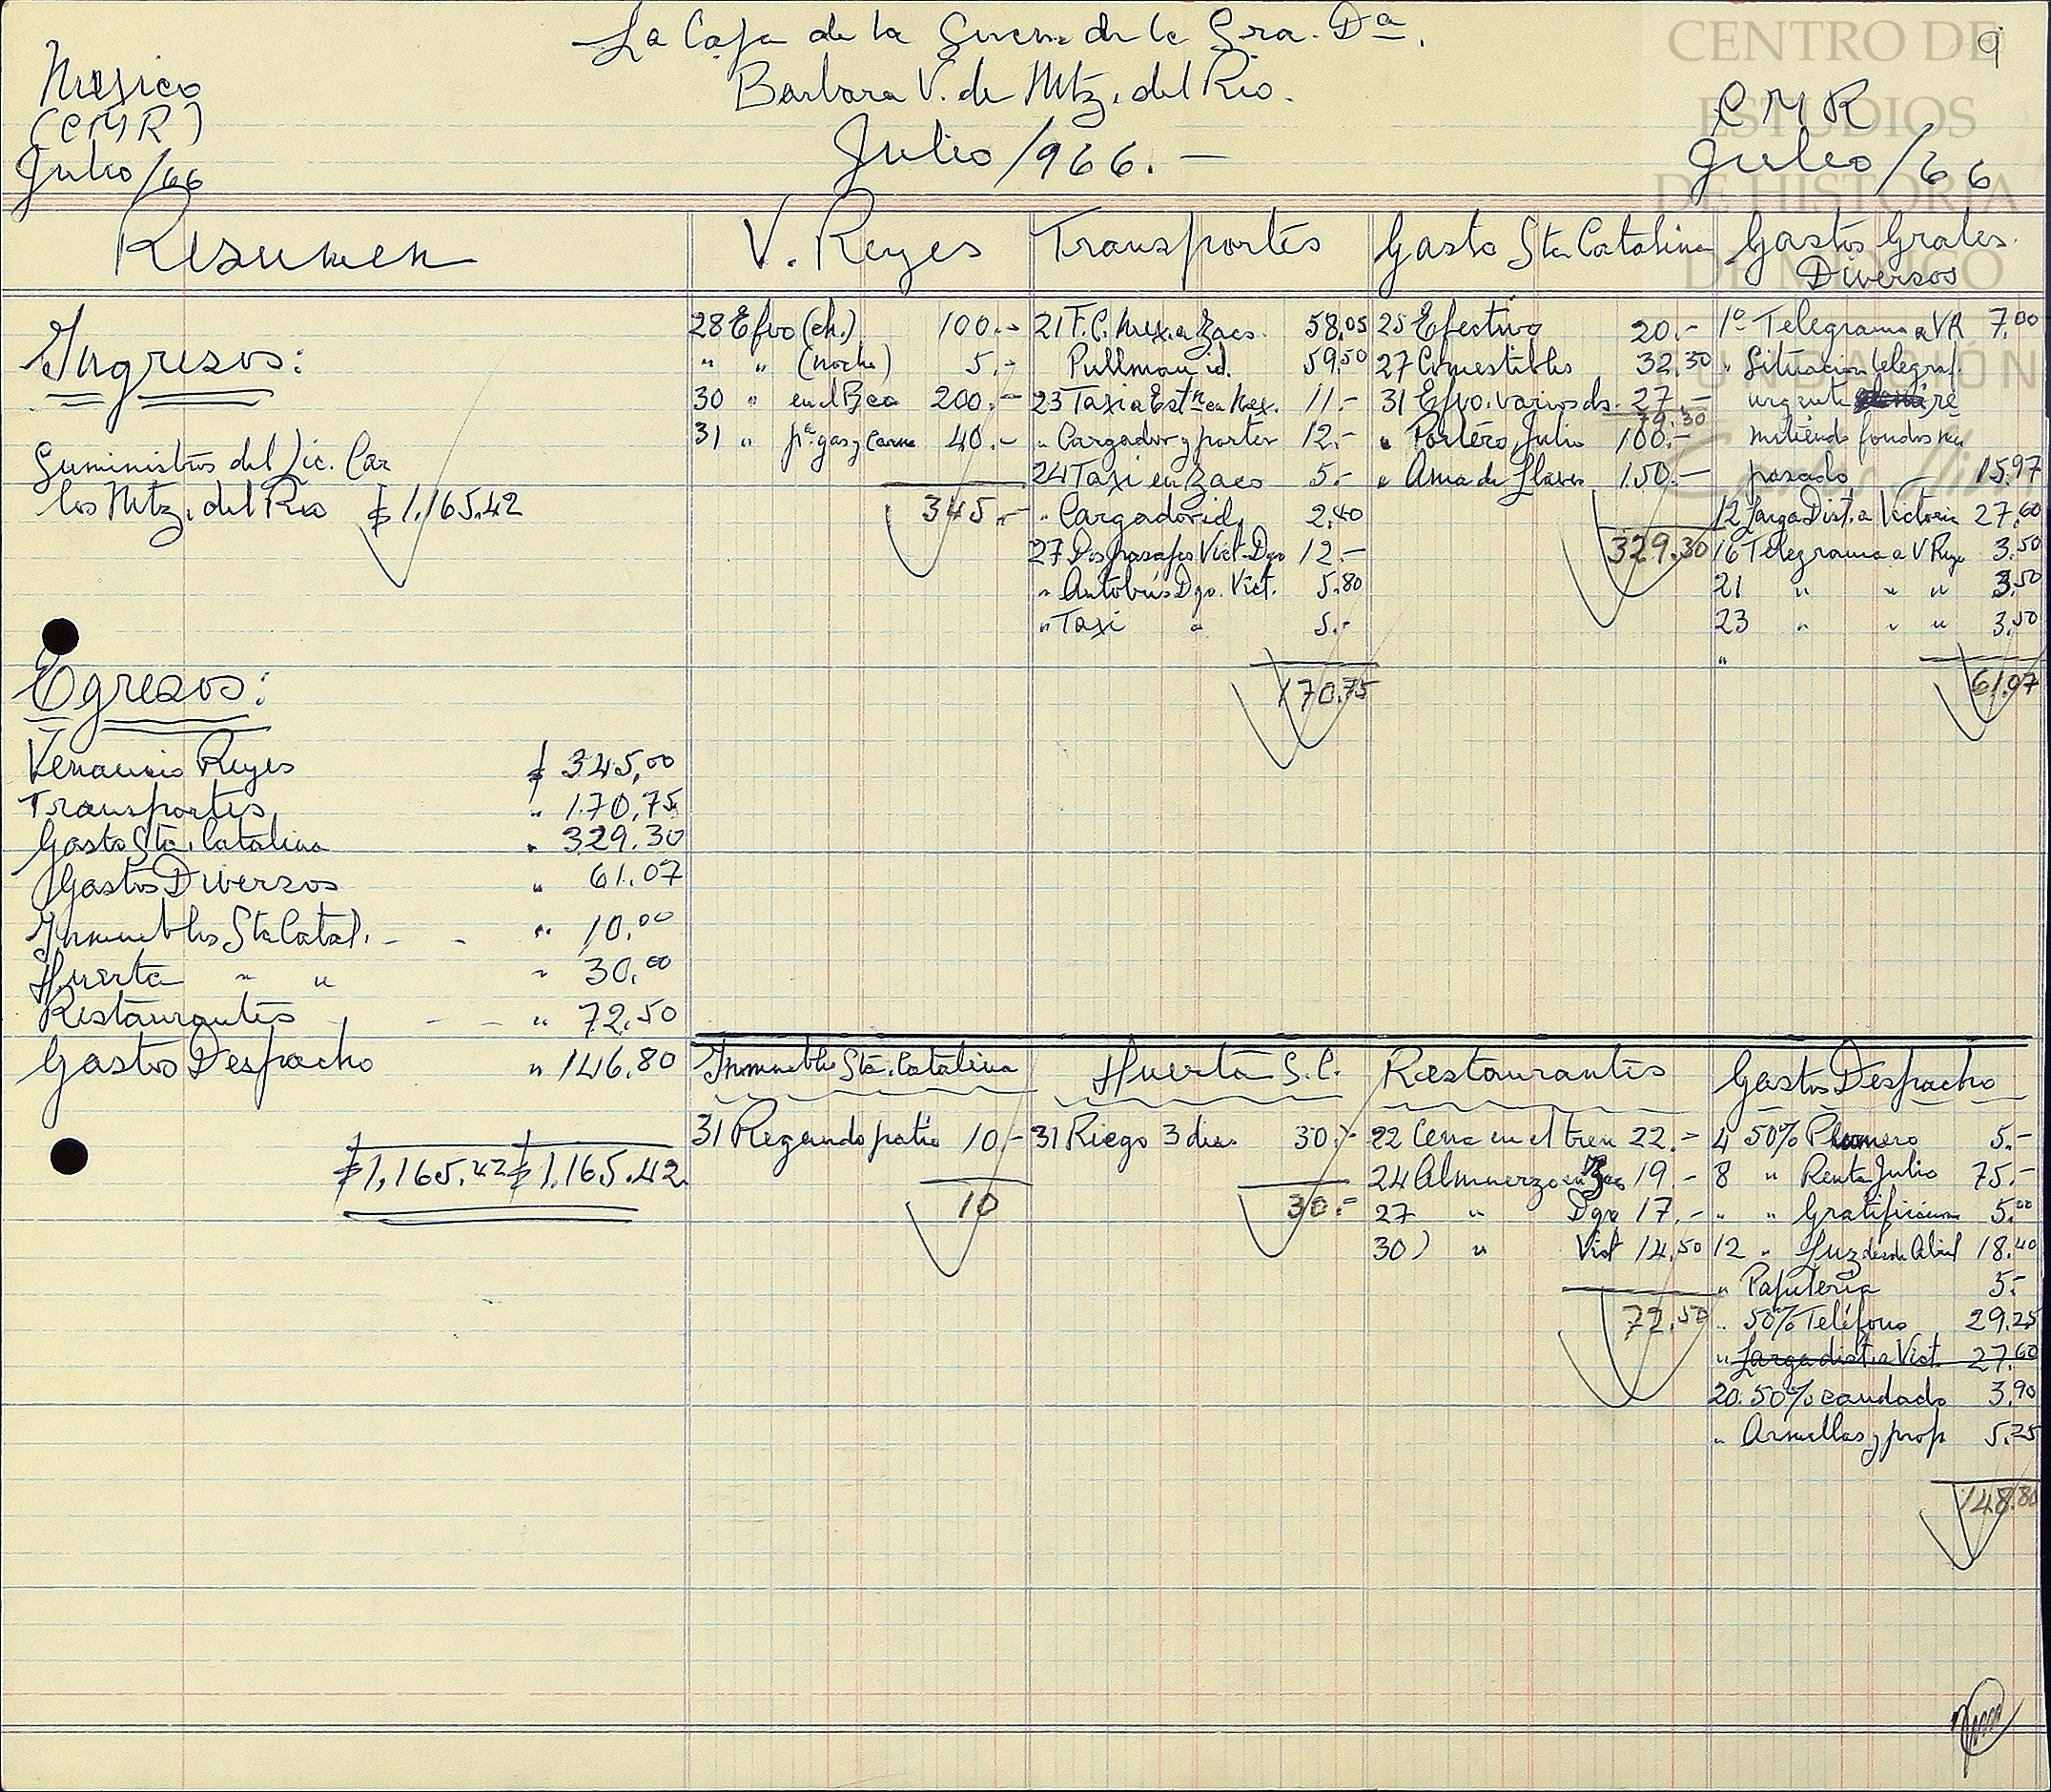 La Caja de la Suc.n. de la Sra. Da.
Barbara V. de Mtz. del Rio.
Julio/966.-
Mexico
(CMR)
Julio/66
9
CMR
Julio/66
CENTRO DE
ESTUDIOS
DE HISTORIA
DE MEXICO
FUNDACIÓN
Resumen
Ingresos:
Suministros del Lic. Car
los Mtz. del Rio $1,165.42
Egresos:
Venancio Reyes $ 345,00
Transportes " 170,75
Gasto Sta. Catalina " 329.30
Gastos Diversos " 61.07
Inmuebles Sta Catal. - - " 10.00
Huerta " " " 30.00
Restaurantes - - - " 72.50
Gastos Despacho " 146.80
$1,165.42 $1.165.42
V. Reyes
28 Efvo (ch.) 100.-
" " (noche) 5.-
30 " en el Bco 200.-
31 " pa. gas y carne 40.-
345.-
Transportes
21 F.C. Mex. a Zacs. 58.05
Pullman id. 59.50
23 Taxi a Estn en Mex. 11.-
" Cargador y porter 12.-
24 Taxi en Zacs 5.-
" Cargador id, 2.40
27 Dos pasajes Vict-Dgo 12.-
" Autobús Dgo. Vict. 5.80
" Taxi " 5.-
170.75
Gasto Sta Catalina
25 Efectivo 20.-
27 Comestibles 32.30
31 Efvo. varios ds. 27.-
79.30
" Portero Julio 100.-
" Ama de Llaves 150.-
329.30
Gastos Grales.
Diversos
1o Telegrama a VR 7.00
" Situacion telegraf.
urgente re
mitiendo fondos mes
pasado 15.97
12 Larga Dist. a Victoria 27.60
16 Telegrama a V Reyes 3.50
21 " " " 3.50
23 " " " 3.50
"
61.07
Inmuebles Sta. Catalina
31 Regando patio 10.-
10
Huerta S.C.
31 Riego 3 dias 30.-
30.-
Restaurantes
22 Cena en el tren 22.-
24 Almuerzo en Zacs 19.-
27 " Dgo 17.-
30) " Vict 14.50
72.50
Gastos Despacho
4 50% Plumero 5.-
8 " Renta Julio 75.-
" " Gratificacion 5.00
12 " Luz desde Abril 18.40
" Papeleria 5.-
" 50% Teléfono 29.25
" Larga dist. a Vict. 27.60
20. 50% candado 3.90
" Armellas y prop 5.25
148.80